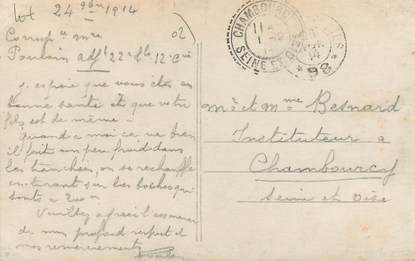 Lot 24 9bre 1914
Corresp ce mre
Poulain Adjt 22e Cle 12e Cie
J'espère que vous êtes en
bonne santé et que votre
fils est de même.
Quand a moi ca va bien
il fait un peu froid dans
les tranchées, on se réchauffe
en tirant sur les boches qui
sont à 200 m
Veuillez agréer l'assurance
de mon profond respect et
mes remerciements
Poulain
Mr et Mme Besnard
Instituteur à
Chambourcy
Seine et Oise
CHAMBOURCY
SEINE ET OISE
98